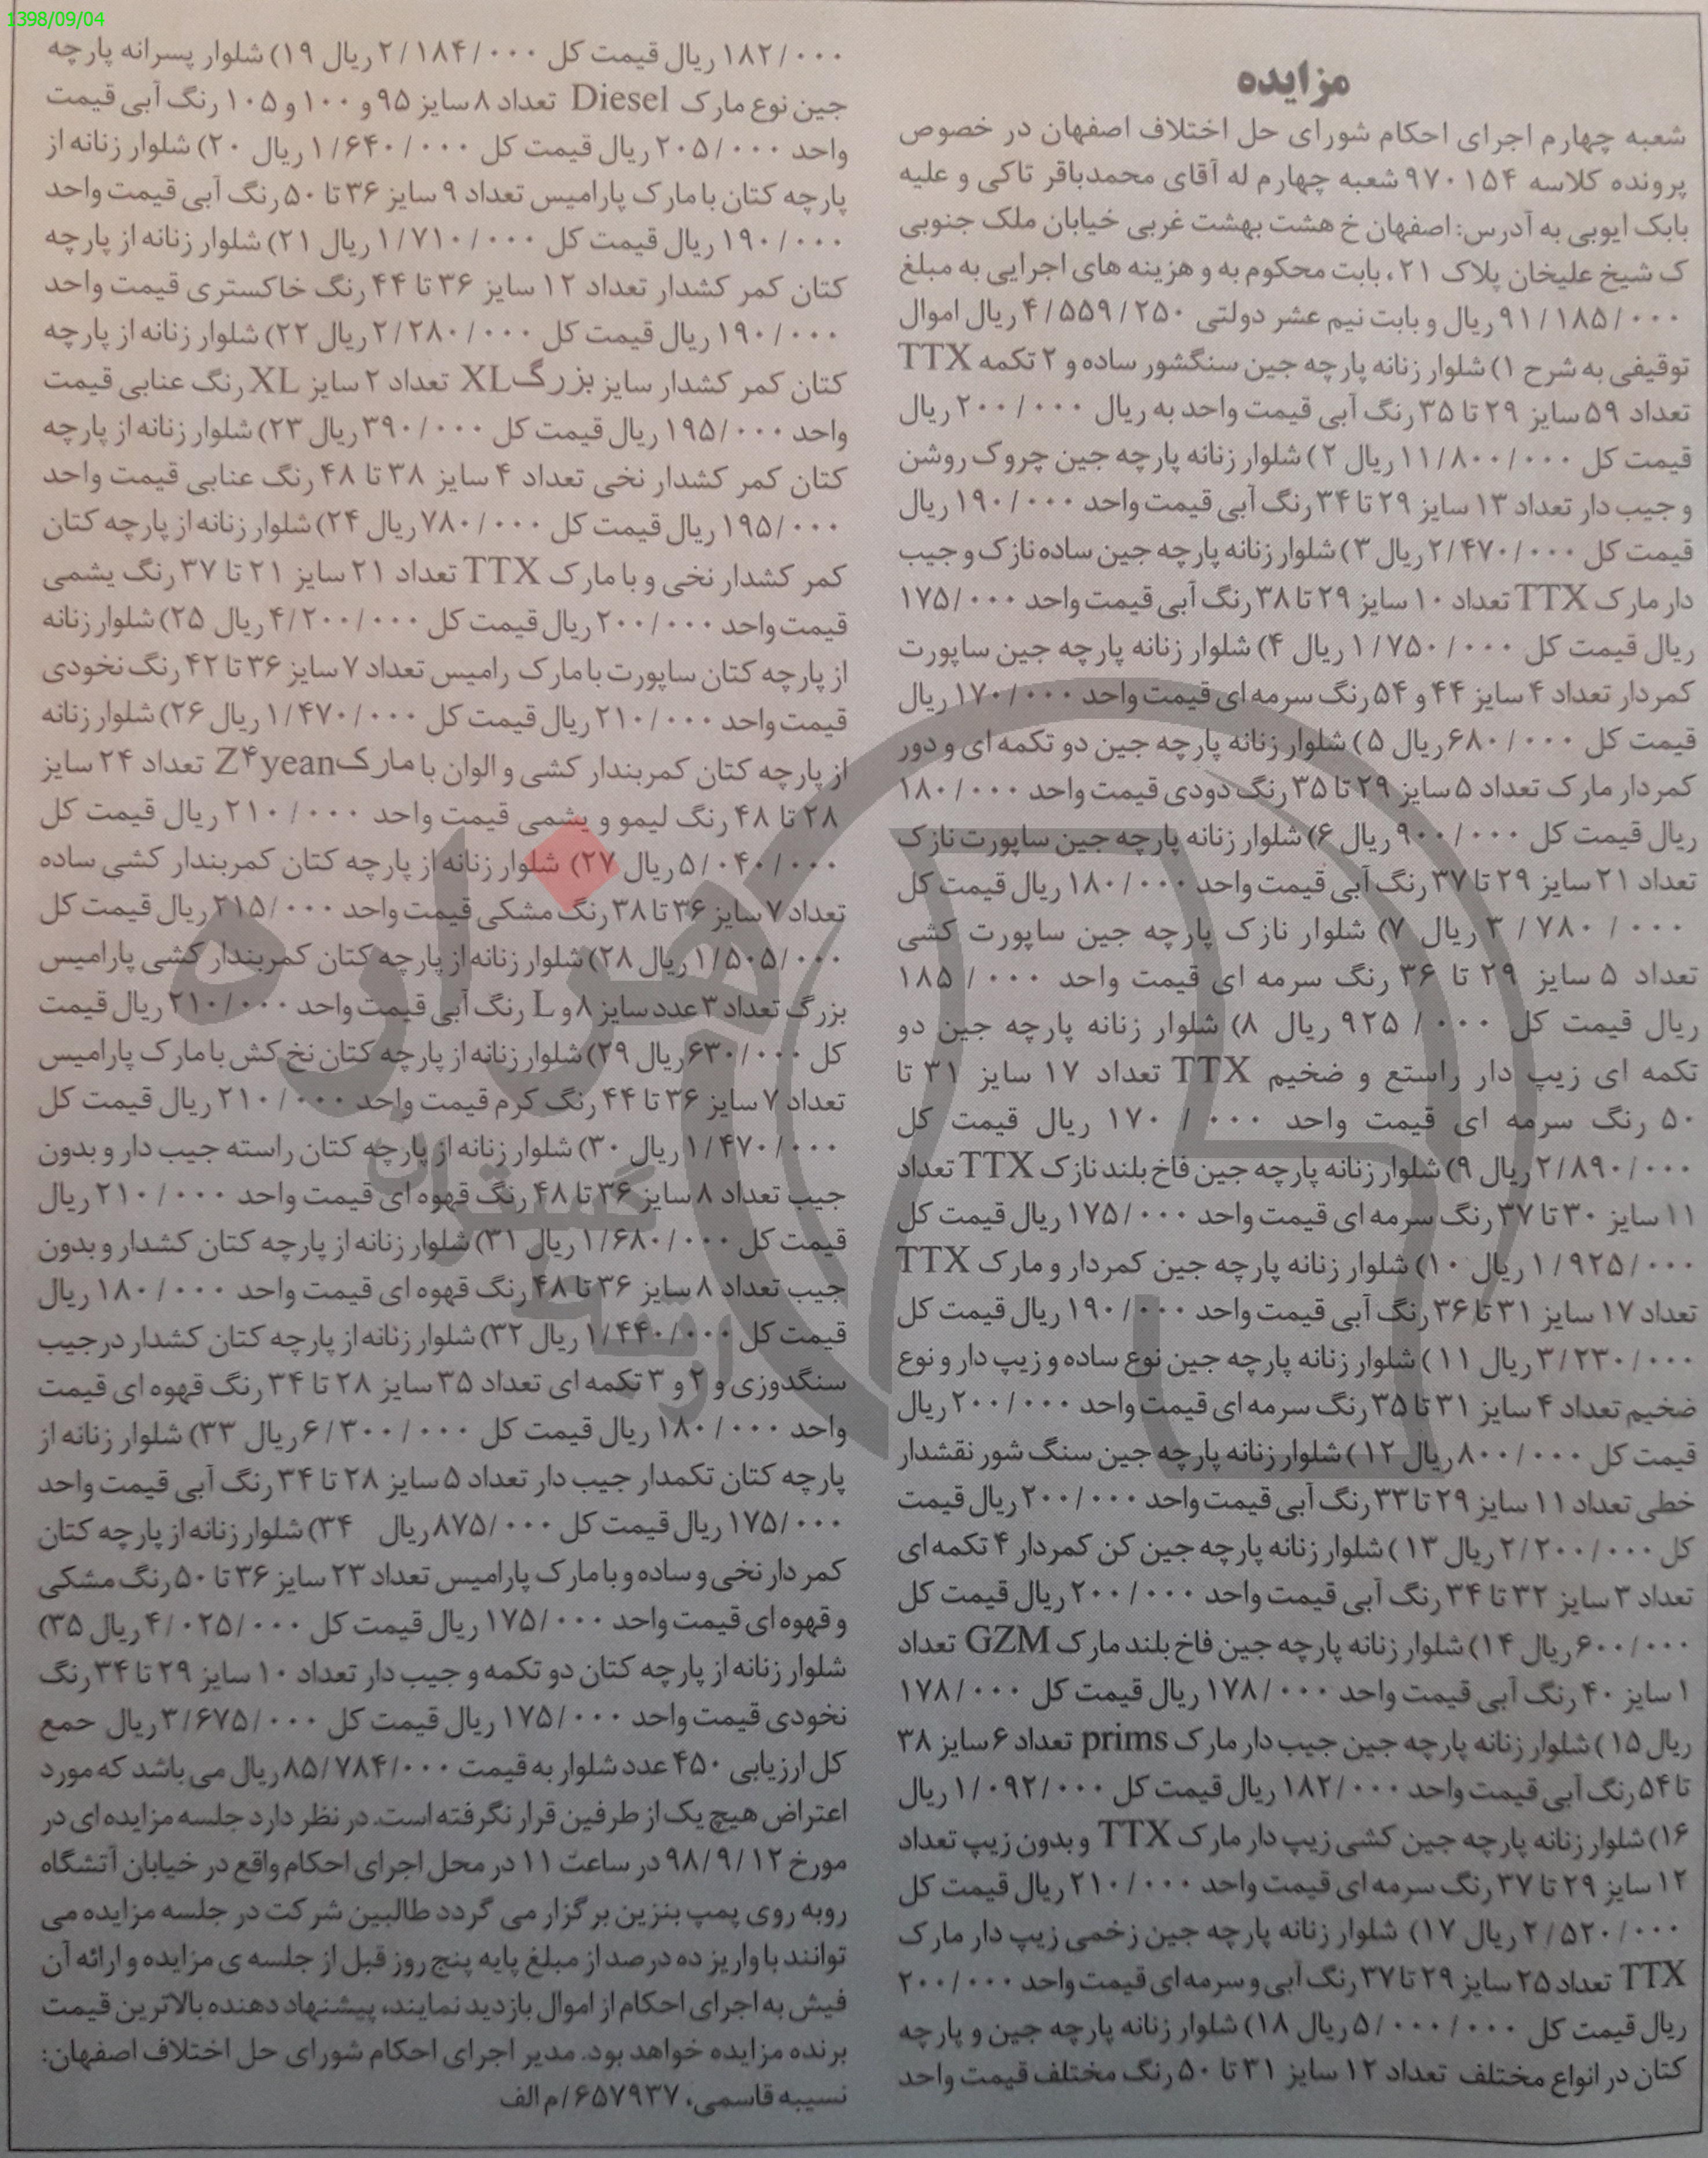 1398/09/04
مزایده
شعبه چهارم اجرای احکام شورای حل اختلاف اصفهان در خصوص
پرونده کلاسه ۹۷۰۱۵۴ شعبه چهارم له آقای محمدباقر تاکی و علیه
بابک ایوبی به آدرس: اصفهان خ هشت بهشت غربی خیابان ملک جنوبی
ک شیخ علیخان پلاک ۲۱، بابت محکوم به و هزینه های اجرایی به مبلغ
۹۱/۱۸۵/۰۰۰ ریال و بابت نیم عشر دولتی ۴/۵۵۹/۲۵۰ ریال اموال
توقیفی به شرح ۱) شلوار زنانه پارچه جین سنگشور ساده و ۲ تکمه TTX
تعداد ۵۹ سایز ۲۹ تا ۳۵ رنگ آبی قیمت واحد به ریال ۲۰۰/۰۰۰ ریال
قیمت کل ۱۱/۸۰۰/۰۰۰ ریال ۲) شلوار زنانه پارچه جین چروک روشن
و جیب دار تعداد ۱۳ سایز ۲۹ تا ۳۴ رنگ آبی قیمت واحد ۱۹۰/۰۰۰ ریال
قیمت کل ۲/۴۷۰/۰۰۰ ریال ۳) شلوار زنانه پارچه جین ساده نازک و جیب
دار مارک TTX تعداد ۱۰ سایز ۲۹ تا ۳۸ رنگ آبی قیمت واحد ۱۷۵/۰۰۰
ریال قیمت کل ۱/۷۵۰/۰۰۰ ریال ۴) شلوار زنانه پارچه جین ساپورت
کمردار تعداد ۴ سایز ۴۴ و ۵۴ رنگ سرمه ای قیمت واحد ۱۷۰/۰۰۰ ریال
قیمت کل ۶۸۰/۰۰۰ ریال ۵) شلوار زنانه پارچه جین دو تکمه ای و دور
کمردار مارک تعداد ۵ سایز ۲۹ تا ۳۵ رنگ دودی قیمت واحد ۱۸۰/۰۰۰
ریال قیمت کل ۹۰۰/۰۰۰ ریال ۶) شلوار زنانه پارچه جین ساپورت نازک
تعداد ۲۱ سایز ۲۹ تا ۳۷ رنگ آبی قیمت واحد ۱۸۰/۰۰۰ ریال قیمت کل
۳/۷۸۰/۰۰۰ ریال ۷) شلوار نازک پارچه جین ساپورت کشی
تعداد ۵ سایز ۲۹ تا ۳۶ رنگ سرمه ای قیمت واحد ۱۸۵/۰۰۰
ریال قیمت کل ۹۲۵/۰۰۰ ریال ۸) شلوار زنانه پارچه جین دو
تکمه ای زیپ دار راستع و ضخیم TTX تعداد ۱۷ سایز ۳۱ تا
۵۰ رنگ سرمه ای قیمت واحد ۱۷۰/۰۰۰ ریال قیمت کل
۲/۸۹۰/۰۰۰ ریال ۹) شلوار زنانه پارچه جین فاخ بلند نازک TTX تعداد
۱۱ سایز ۳۰ تا ۳۷ رنگ سرمه ای قیمت واحد ۱۷۵/۰۰۰ ریال قیمت کل
۱/۹۲۵/۰۰۰ ریال ۱۰) شلوار زنانه پارچه جین کمردار و مارک TTX
تعداد ۱۷ سایز ۳۱ تا ۳۶ رنگ آبی قیمت واحد ۱۹۰/۰۰۰ ریال قیمت کل
۳/۲۳۰/۰۰۰ ریال ۱۱) شلوار زنانه پارچه جین نوع ساده و زیپ دار و نوع
ضخیم تعداد ۴ سایز ۳۱ تا ۳۵ رنگ سرمه ای قیمت واحد ۲۰۰/۰۰۰ ریال
قیمت کل ۸۰۰/۰۰۰ ریال ۱۲) شلوار زنانه پارچه جین سنگ شور نقشدار
خطی تعداد ۱۱ سایز ۲۹ تا ۳۳ رنگ آبی قیمت واحد ۲۰۰/۰۰۰ ریال قیمت
کل ۲/۲۰۰/۰۰۰ ریال ۱۳) شلوار زنانه پارچه جین کن کمردار ۴ تکمه ای
تعداد ۳ سایز ۳۲ تا ۳۴ رنگ آبی قیمت واحد ۲۰۰/۰۰۰ ریال قیمت کل
۶۰۰/۰۰۰ ریال ۱۴) شلوار زنانه پارچه جین فاخ بلند مارک GZM تعداد
۱ سایز ۴۰ رنگ آبی قیمت واحد ۱۷۸/۰۰۰ ریال قیمت کل ۱۷۸/۰۰۰
ریال ۱۵) شلوار زنانه پارچه جین جیب دار مارک prims تعداد ۶ سایز ۳۸
تا ۵۴ رنگ آبی قیمت واحد ۱۸۲/۰۰۰ ریال قیمت کل ۱/۰۹۲/۰۰۰ ریال
۱۶) شلوار زنانه پارچه جین کشی زیپ دار مارک TTX و بدون زیپ تعداد
۱۲ سایز ۲۹ تا ۳۷ رنگ سرمه ای قیمت واحد ۲۱۰/۰۰۰ ریال قیمت کل
۲/۵۲۰/۰۰۰ ریال ۱۷) شلوار زنانه پارچه جین زخمی زیپ دار مارک
TTX تعداد ۲۵ سایز ۲۹ تا ۳۷ رنگ آبی و سرمه ای قیمت واحد ۲۰۰/۰۰۰
ریال قیمت کل ۵/۰۰۰/۰۰۰ ریال ۱۸) شلوار زنانه پارچه جین و پارچه
کتان در انواع مختلف تعداد ۱۲ سایز ۳۱ تا ۵۰ رنگ مختلف قیمت واحد
۱۸۲/۰۰۰ ریال قیمت کل ۲/۱۸۴/۰۰۰ ریال ۱۹) شلوار پسرانه پارچه
جین نوع مارک Diesel تعداد ۸ سایز ۹۵ و ۱۰۰ و ۱۰۵ رنگ آبی قیمت
واحد ۲۰۵/۰۰۰ ریال قیمت کل ۱/۶۴۰/۰۰۰ ریال ۲۰) شلوار زنانه از
پارچه کتان با مارک پارامیس تعداد ۹ سایز ۳۶ تا ۵۰ رنگ آبی قیمت واحد
۱۹۰/۰۰۰ ریال قیمت کل ۱/۷۱۰/۰۰۰ ریال ۲۱) شلوار زنانه از پارچه
کتان کمر کشدار تعداد ۱۲ سایز ۳۶ تا ۴۴ رنگ خاکستری قیمت واحد
۱۹۰/۰۰۰ ریال قیمت کل ۲/۲۸۰/۰۰۰ ریال ۲۲) شلوار زنانه از پارچه
کتان کمر کشدار سایز بزرگ XL تعداد ۲ سایز XL رنگ عنابی قیمت
واحد ۱۹۵/۰۰۰ ریال قیمت کل ۳۹۰/۰۰۰ ریال ۲۳) شلوار زنانه از پارچه
کتان کمر کشدار نخی تعداد ۴ سایز ۳۸ تا ۴۸ رنگ عنابی قیمت واحد
۱۹۵/۰۰۰ ریال قیمت کل ۷۸۰/۰۰۰ ریال ۲۴) شلوار زنانه از پارچه کتان
کمر کشدار نخی و با مارک TTX تعداد ۲۱ سایز ۲۱ تا ۳۷ رنگ یشمی
قیمت واحد ۲۰۰/۰۰۰ ریال قیمت کل ۴/۲۰۰/۰۰۰ ریال ۲۵) شلوار زنانه
از پارچه کتان ساپورت با مارک رامیس تعداد ۷ سایز ۳۶ تا ۴۲ رنگ نخودی
قیمت واحد ۲۱۰/۰۰۰ ریال قیمت کل ۱/۴۷۰/۰۰۰ ریال ۲۶) شلوار زنانه
از پارچه کتان کمربندار کشی و الوان با مارک Z۴yean تعداد ۲۴ سایز
۲۸ تا ۴۸ رنگ لیمو و یشمی قیمت واحد ۲۱۰/۰۰۰ ریال قیمت کل
۵/۰۴۰/۰۰۰ ریال ۲۷) شلوار زنانه از پارچه کتان کمربندار کشی ساده
تعداد ۷ سایز ۳۶ تا ۳۸ رنگ مشکی قیمت واحد ۲۱۵/۰۰۰ ریال قیمت کل
۱/۵۰۵/۰۰۰ ریال ۲۸) شلوار زنانه از پارچه کتان کمربندار کشی پارامیس
بزرگ تعداد ۳ عدد سایز ۸ و L رنگ آبی قیمت واحد ۲۱۰/۰۰۰ ریال قیمت
کل ۶۳۰/۰۰۰ ریال ۲۹) شلوار زنانه از پارچه کتان نخ کش با مارک پارامیس
تعداد ۷ سایز ۳۶ تا ۴۴ رنگ کرم قیمت واحد ۲۱۰/۰۰۰ ریال قیمت کل
۱/۴۷۰/۰۰۰ ریال ۳۰) شلوار زنانه از پارچه کتان راسته جیب دار و بدون
جیب تعداد ۸ سایز ۳۶ تا ۴۸ رنگ قهوه ای قیمت واحد ۲۱۰/۰۰۰ ریال
قیمت کل ۱/۶۸۰/۰۰۰ ریال ۳۱) شلوار زنانه از پارچه کتان کشدار و بدون
جیب تعداد ۸ سایز ۳۶ تا ۴۸ رنگ قهوه ای قیمت واحد ۱۸۰/۰۰۰ ریال
قیمت کل ۱/۴۴۰/۰۰۰ ریال ۳۲) شلوار زنانه از پارچه کتان کشدار درجیب
سنگدوزی و ۲ و ۳ تکمه ای تعداد ۳۵ سایز ۲۸ تا ۳۴ رنگ قهوه ای قیمت
واحد ۱۸۰/۰۰۰ ریال قیمت کل ۶/۳۰۰/۰۰۰ ریال ۳۳) شلوار زنانه از
پارچه کتان تکمدار جیب دار تعداد ۵ سایز ۲۸ تا ۳۴ رنگ آبی قیمت واحد
۱۷۵/۰۰۰ ریال قیمت کل ۸۷۵/۰۰۰ ریال ۳۴) شلوار زنانه از پارچه کتان
کمر دار نخی و ساده و با مارک پارامیس تعداد ۲۳ سایز ۳۶ تا ۵۰ رنگ مشکی
و قهوه ای قیمت واحد ۱۷۵/۰۰۰ ریال قیمت کل ۴/۰۲۵/۰۰۰ ریال ۳۵)
شلوار زنانه از پارچه کتان دو تکمه و جیب دار تعداد ۱۰ سایز ۲۹ تا ۳۴ رنگ
نخودی قیمت واحد ۱۷۵/۰۰۰ ریال قیمت کل ۳/۶۷۵/۰۰۰ ریال حمع
کل ارزیابی ۴۵۰ عدد شلوار به قیمت ۸۵/۷۸۴/۰۰۰ ریال می باشد که مورد
اعتراض هیچ یک از طرفین قرار نگرفته است. در نظر دارد جلسه مزایده ای در
مورخ ۹۸/۹/۱۲ در ساعت ۱۱ در محل اجرای احکام واقع در خیابان آتشگاه
روبه روی پمپ بنزین برگزار می گردد طالبین شرکت در جلسه مزایده می
توانند با واریز ده درصد از مبلغ پایه پنج روز قبل از جلسه ی مزایده و ارائه آن
فیش به اجرای احکام از اموال بازدید نمایند، پیشنهاد دهنده بالاترین قیمت
برنده مزایده خواهد بود. مدیر اجرای احکام شورای حل اختلاف اصفهان:
نسیبه قاسمی، ۶۵۷۹۳۷/م الف
هزاره